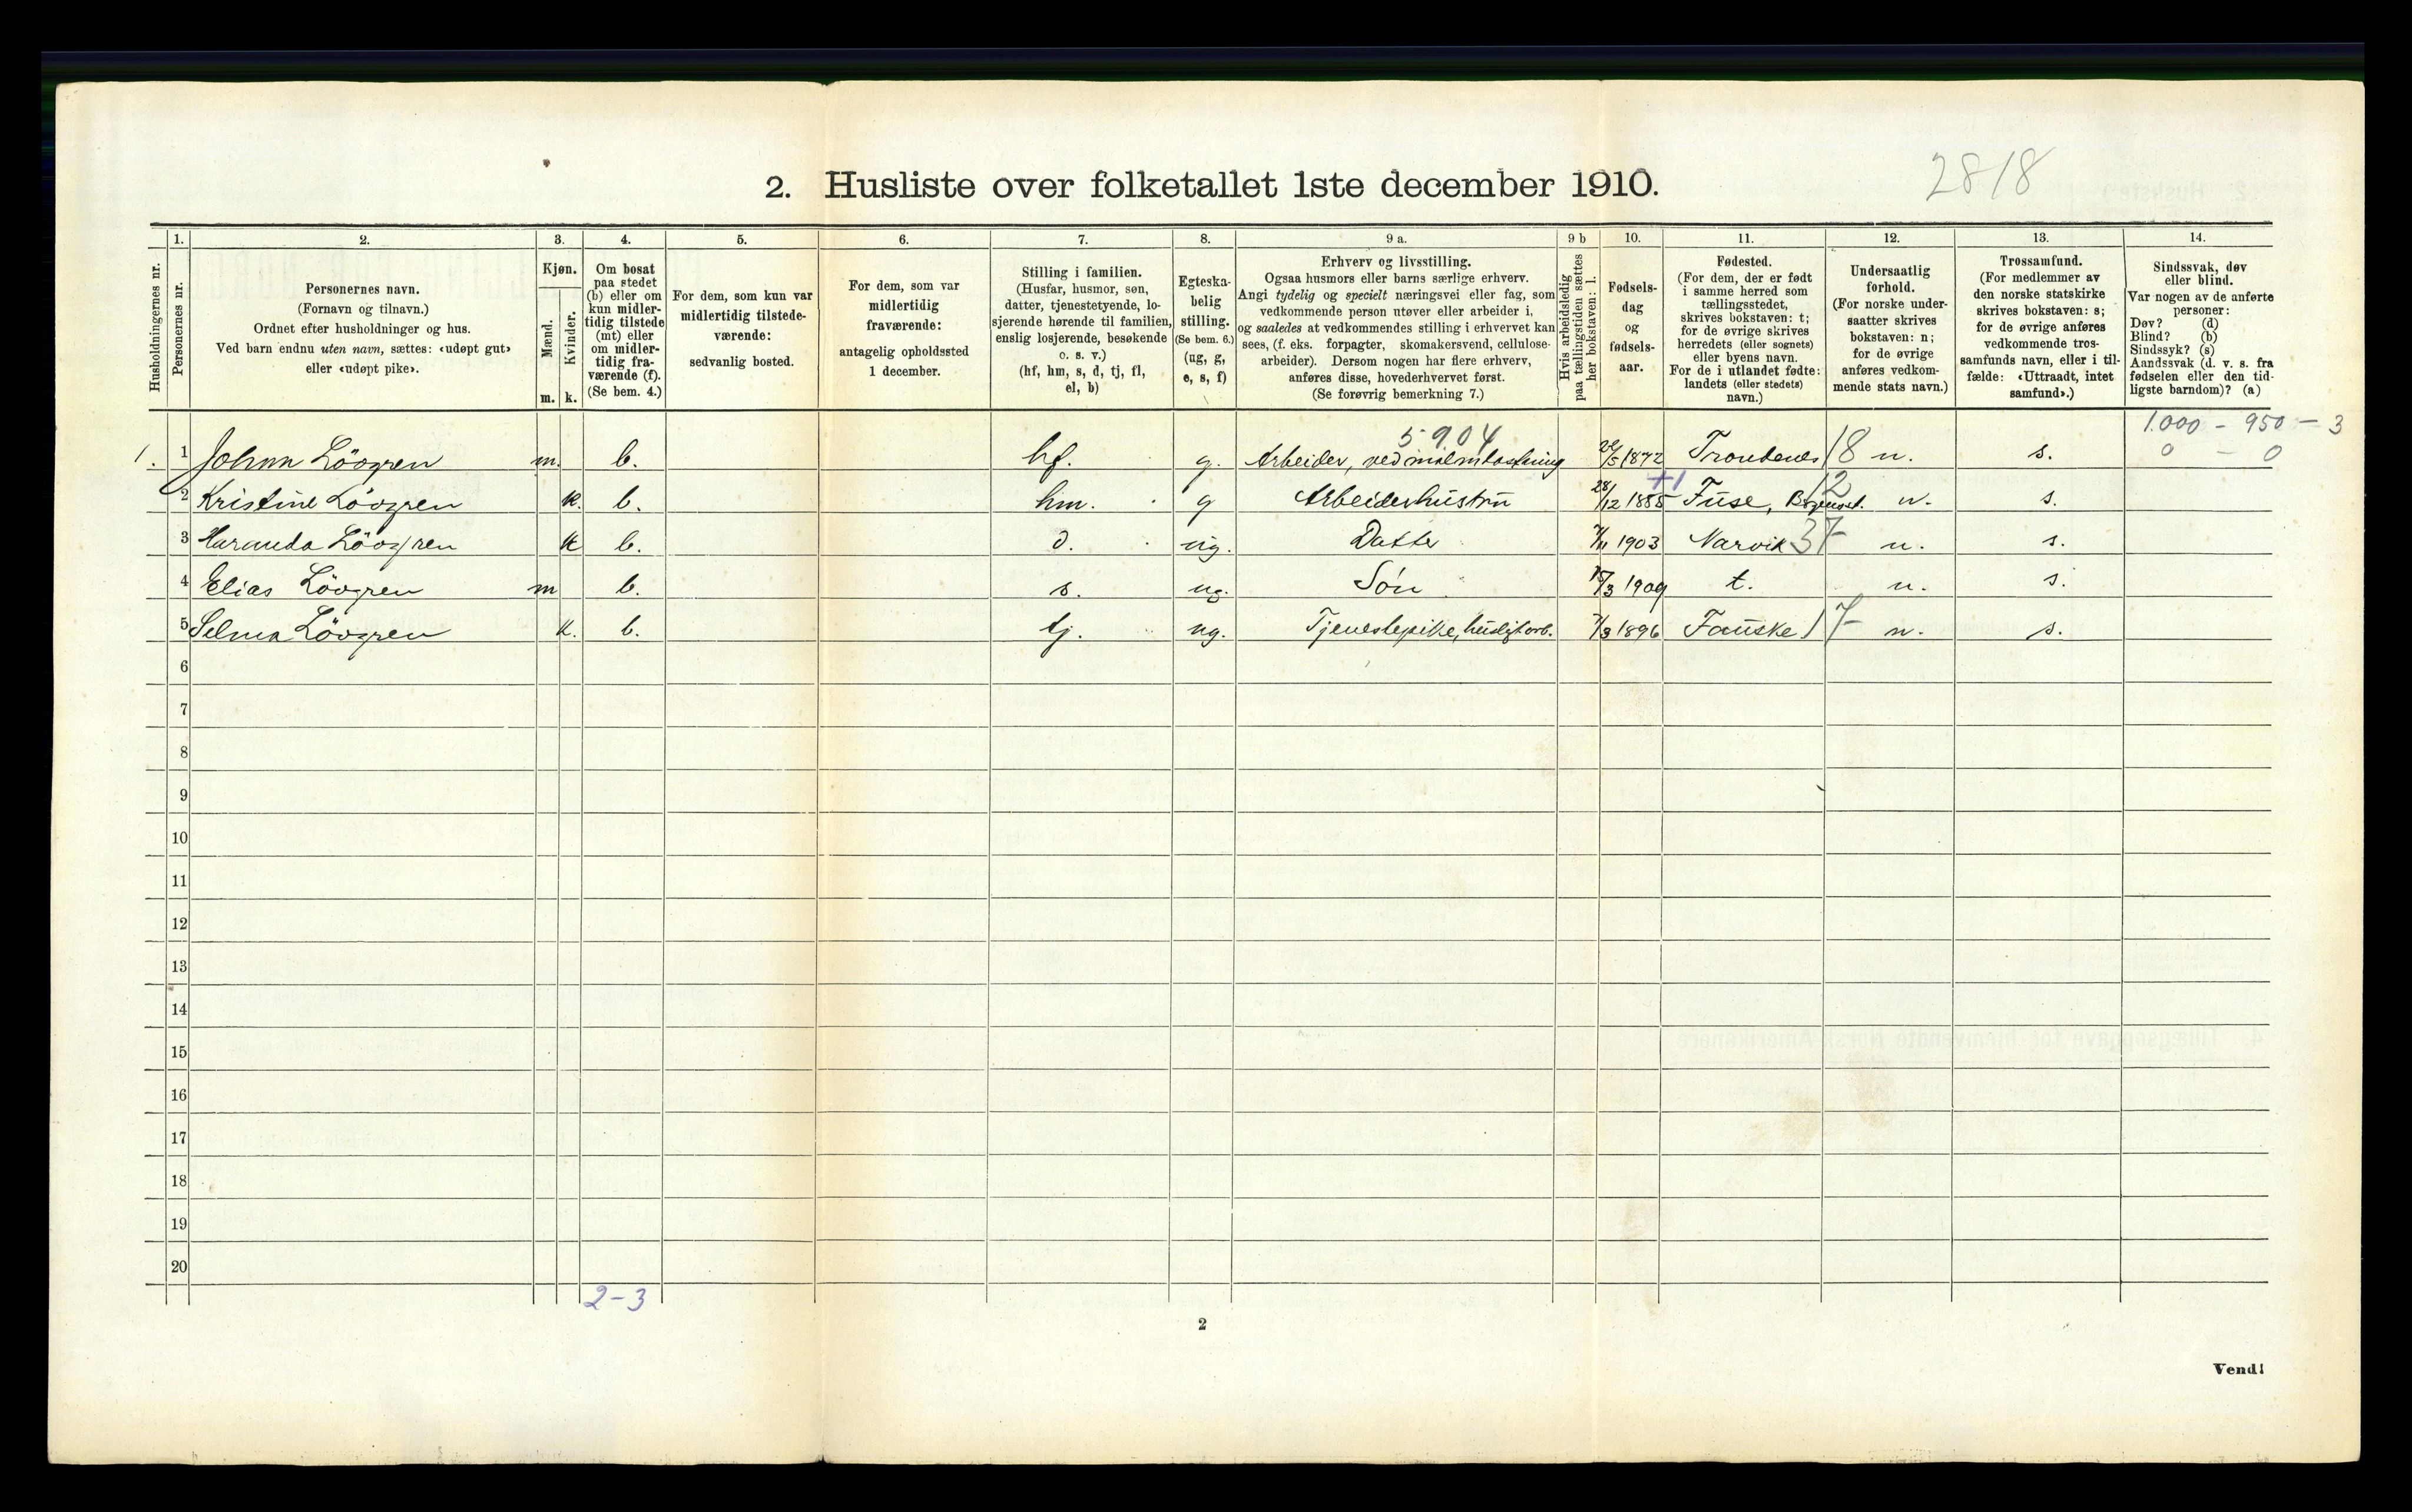 2818
2. Husliste over folketallet 1ste december 1910.
Husholdningernes nr.
1.
Personernes nr.
2.
Personernes navn.
(Fornavn og tilnavn.)
Ordnet efter husholdninger og hus.
Ved barn endnu uten navn, sættes: «udøpt gut»
eller «udøpt pike».
3.
Kjøn.
Mænd.
Kvinder.
m. k.
4.
Om bosat
paa stedet
(b) eller om
kun midler-
tidig tilstede
(mt) eller
om midler-
tidig fra-
værende (f).
(Se bem. 4.)
5.
For dem, som kun var
midlertidig tilstede-
værende:
sedvanlig bosted.
6.
For dem, som var
midlertidig
fraværende:
antagelig opholdssted
1 december.
7.
Stilling i familien.
(Husfar, husmor, søn,
datter, tjenestetyende, lo-
sjerende hørende til familien,
enslig losjerende, besøkende
o. s. v.)
(hf, hm, s, d, tj, fl,
el, b)
8.
Egteska-
belig
stilling.
(Se bem. 6.)
(ug, g,
e, s, f)
9 a.
Erhverv og livsstilling.
Ogsaa husmors eller barns særlige erhverv.
Angi tydelig og specielt næringsvei eller fag, som
vedkommende person utøver eller arbeider i,
og saaledes at vedkommendes stilling i erhvervet kan
sees, (f. eks. forpagter, skomakersvend, cellulose-
arbeider). Dersom nogen har flere erhverv,
anføres disse, hovederhvervet først.
(Se forøvrig bemerkning 7.)
9 b
Hvis arbeidsledig
paa tællingstiden sættes
her bokstaven: l.
10.
Fødsels-
dag
og
fødsels-
aar.
11.
Fødested.
(For dem, der er født
i samme herred som
tællingsstedet,
skrives bokstaven: t;
for de øvrige skrives
herredets (eller sognets)
eller byens navn.
For de i utlandet fødte:
landets (eller stedets)
navn.)
12.
Undersaatlig
forhold.
(For norske under-
saatter skrives
bokstaven: n;
for de øvrige
anføres vedkom-
mende stats navn.)
13.
Trossamfund.
(For medlemmer av
den norske statskirke
skrives bokstaven: s;
for de øvrige anføres
vedkommende tros-
samfunds navn, eller i til-
fælde: «Uttraadt, intet
samfund».)
14.
Sindssvak, døv
eller blind.
Var nogen av de anførte
personer:
Døv? (d)
Blind? (b)
Sindssyk? (s)
Aandssvak (d. v. s. fra
fødselen eller den tid-
ligste barndom)? (a)
5904 1.000 - 950 - 3
1. 1 Johan Lövgren m. b. hf. g. Arbeider, ved malmlastning 22/5 1872 Trondenes 18 n. s. 0 - 0
+1 12
2 Kristine Lövgren k. b. hm. g 28/12 1885 Arbeiderhustru Fuse, n. s.
3 Lövgren k b. d. ug. Datter 1903 Narvik 37 n. s.
4 Elias Lövgren m b. s. ug. Søn 15/3 1909 t. n. s.
5 Selma Lövgren k. b. tj. ug. Tjenestepike, husligt arb. 7/3 1896 Fauske 17 n. s.
6
7
8
9
10
11
12
13
14
15
16
17
18
19
20
2-3
2
Vend!